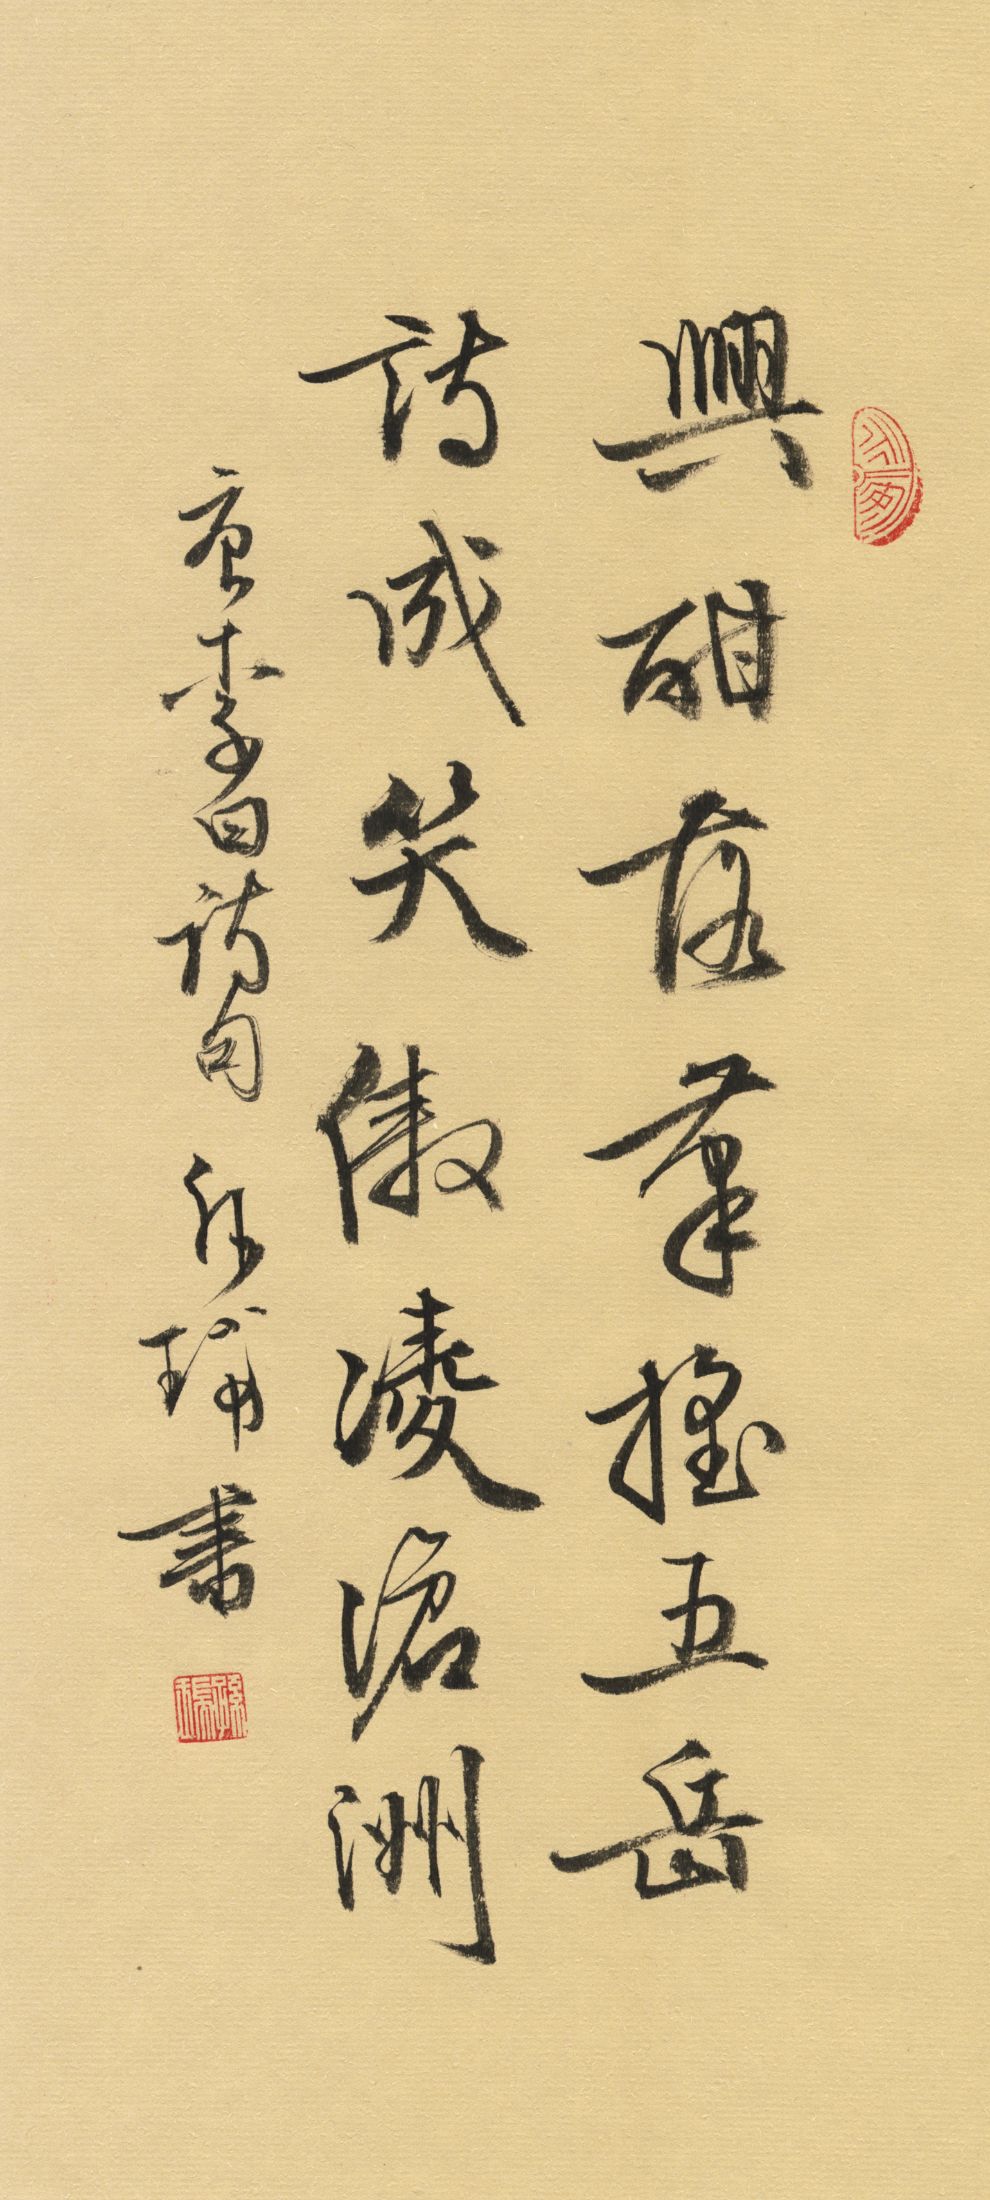 興酣落筆搖五岳
詩成笑傲凌滄洲
唐李白詩句 書